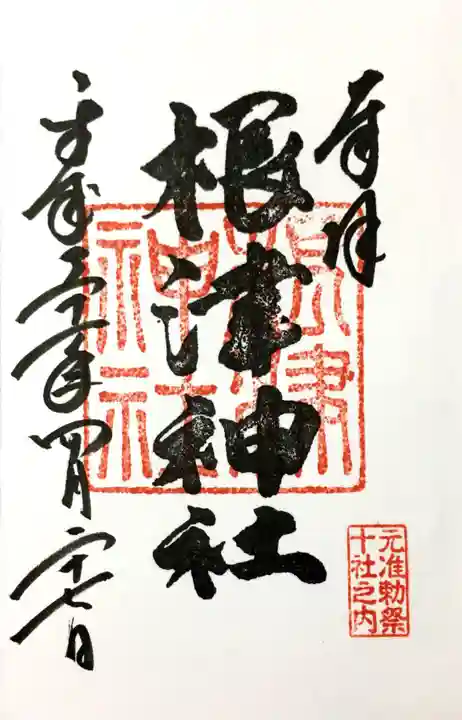 奉拝
根津神社
平成三十一年四月二十七日
根津神社
元准勅祭
十社之内